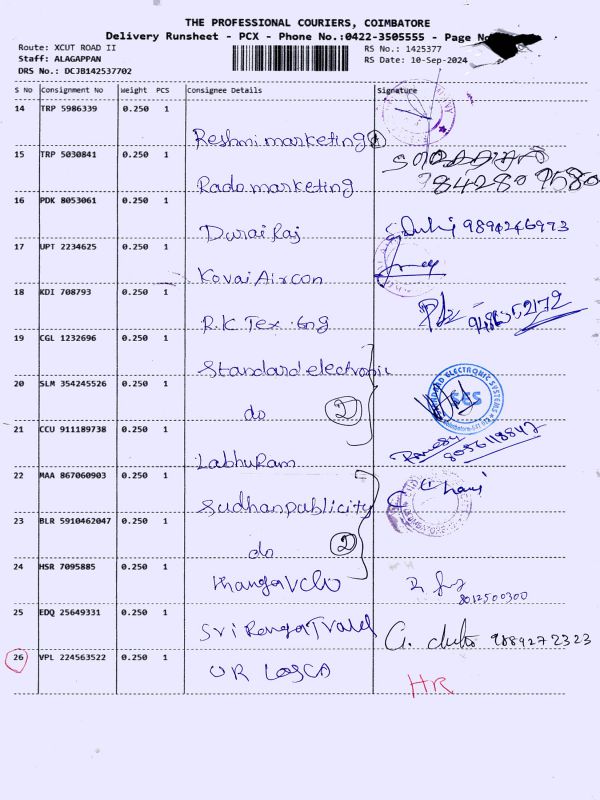 THE PROFESSIONAL COURIERS, COIMBATORE
Delivery Runsheet - PCX - Phone No.:0422-3505555 - Page No
Route: XCUT ROAD II
RS No.: 1425377
Staff: ALAGAPPAN
RS Date: 10-Sep-2024
DRS No.: DCJB142537702
S No Consignment No Weight PCS Consignee Details Signature
14 TRP 5986339 0.250 1 Reshmi marketing
15 TRP 5030841 0.250 1 Rado marketing 9842809580
16 PDK 8053061 0.250 1 Durai Raj 9894246973
17 UPT 2234625 0.250 1 Kovai Aircon
18 KDI 708793 0.250 1 R.K Tex. Eng
19 CGL 1232696 0.250 1 Standard electronic
20 SLM 354245526 0.250 1 do 2
STANDARD ELECTRONIC SYSTEMS
SES
21 CCU 911189738 0.250 1 LabhuRam 8056118847
22 MAA 867060903 0.250 1 Sudhan publicity
23 BLR 5910462047 0.250 1 do 2
24 HSR 7095885 0.250 1 8012500300
25 EDQ 25649331 0.250 1 Sri Ranga Travel 9889272323
26 VPL 224563522 0.250 1 UR HR